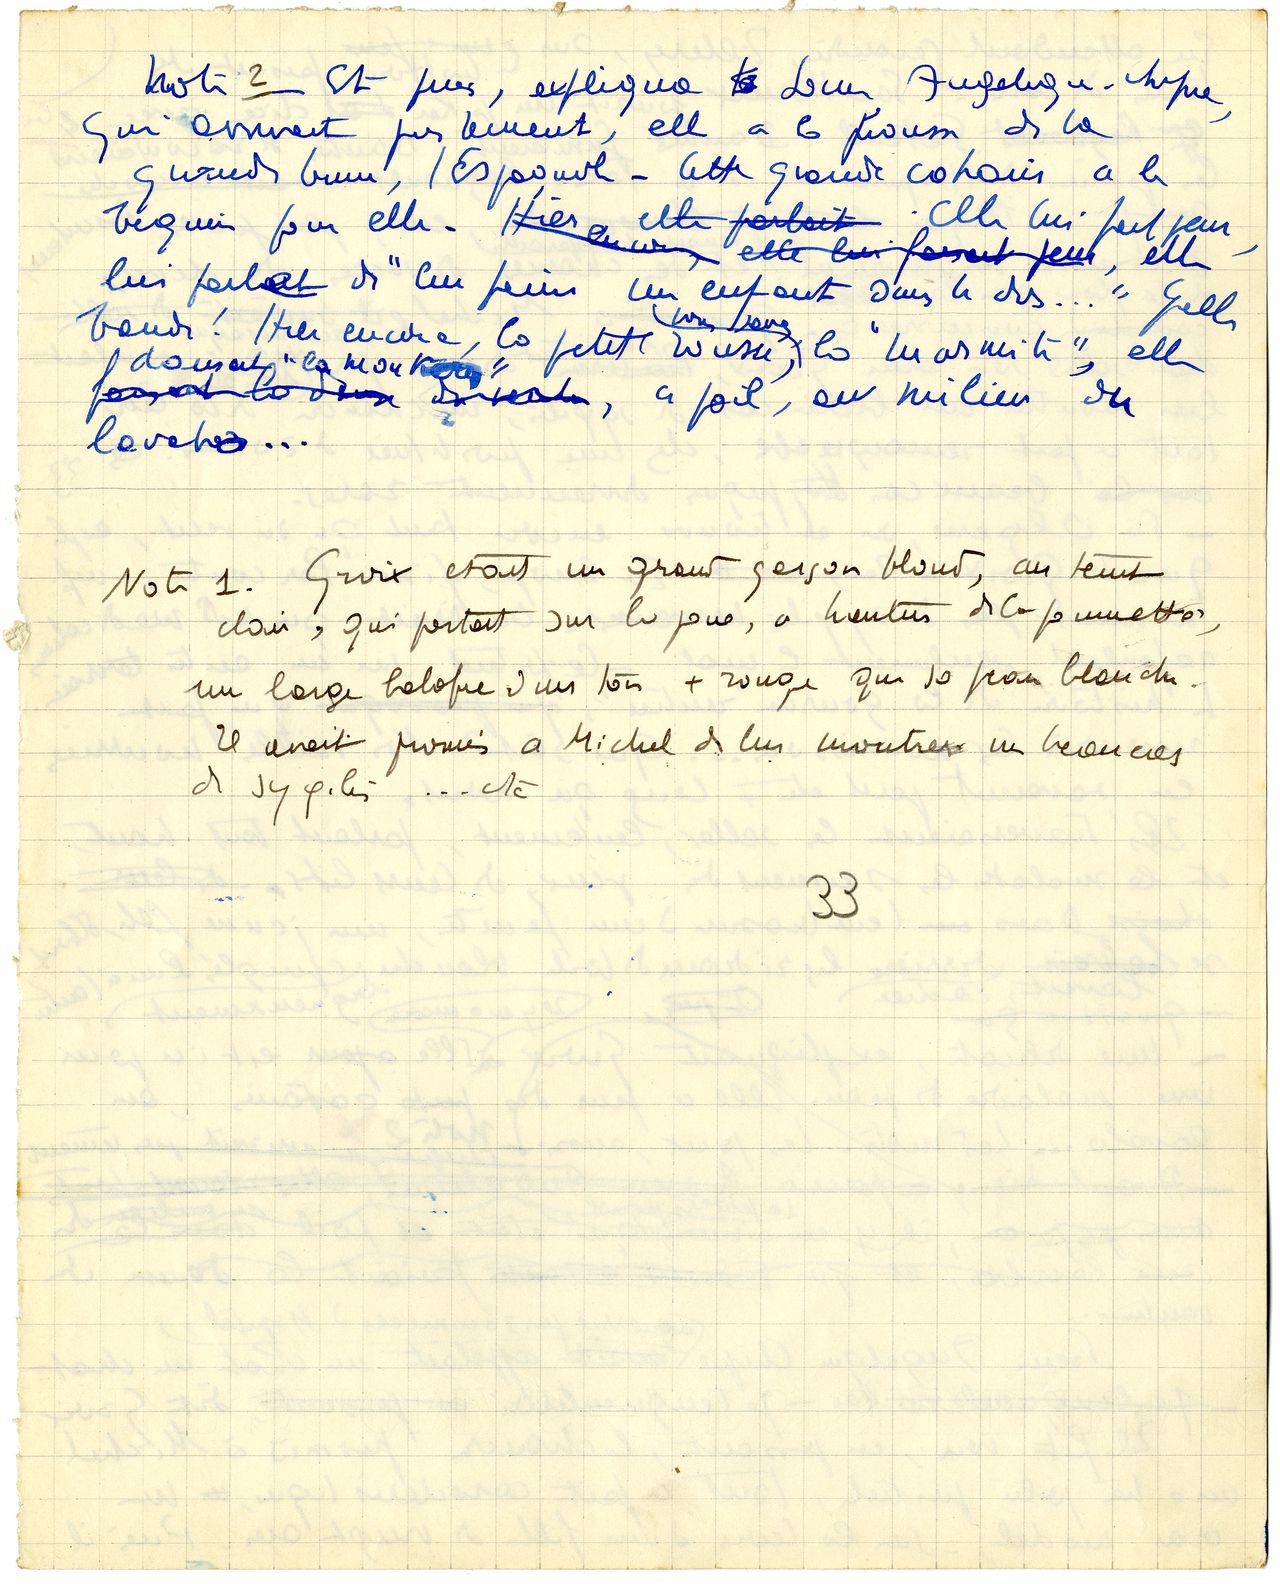 Note 2 Et puis, expliqua Soeur Angélique-
qui arrivait justement, elle a la frousse de la
grande brune, l'Espagnole - Cette grande a le
béguin pour elle. Hier elle parlait Elle lui fait peur,
encore, elle lui faisait peur, elle
lui parlait de "lui faire un enfant dans le dos..." Quelle
bande ! Hier encore, la petite rousse, la "marmite", elle
dansait "la
faisait la danse du ventre, à poil, au milieu du
lavabo...
Note 1. Groix était un grand garçon blond, au teint
clair, qui portait sur la joue, a hauteur de la pommette,
un large balafre d'un ton + rouge que sa peau blanche.
Il avait promis a Michel de lui montrer un beau cas
de sy ... etc
33